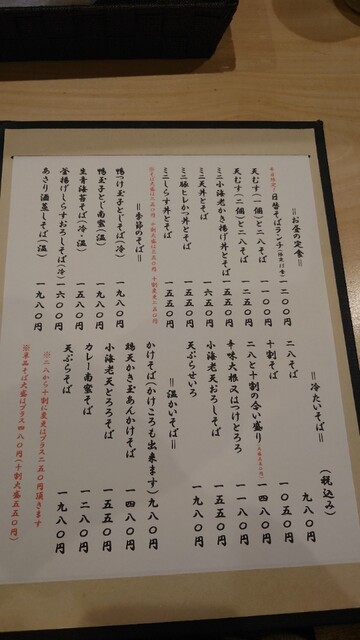 ＝お昼の定食＝
平日限定！日替そばランチ 一二〇〇円
天むす（一個）と二八そば 一一〇〇円
天むす（二個）と二八そば 一五五〇円
ミニ小海老かき揚げ丼とそば 一五五〇円
ミニ天丼とそば 一六五〇円
ミニ豚ヒレかつ丼とそば 一五五〇円
ミニしらす丼とそば 一五五〇円
＝季節のそば＝
鴨つけ玉子とじそば（冷） 一九八〇円
鴨玉子とじ南蛮（温） 一九八〇円
生青海苔そば（冷・温） 一五五〇円
釜揚げしらすおろしそば（冷） 一六〇〇円
あさり酒蒸しそば（温） 一九八〇円
＝冷たいそば＝（税込み）
二八そば 九八〇円
十割そば 一〇五〇円
二八と十割の合い盛り 一四八〇円
辛味大根又はつけとろろ 一一八〇円
小海老天おろしそば 一五五〇円
天ぷらせいろ 一九八〇円
＝温かいそば＝
かけそば（かけころも出来ます） 九八〇円
鶏天かき玉あんかけそば 一四八〇円
小海老天とろろそば 一五五〇円
カレー南蛮そば 一二八〇円
天ぷらそば 一九八〇円
※二八から十割に変更はプラス二五〇円頂きます
※単品そば大盛はプラス四八〇円（十割大盛五五〇円）